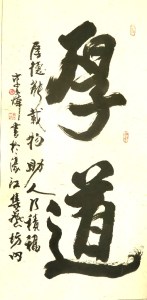 厚道
厚德能載物助人乃積福
書於濠江集藝坊內